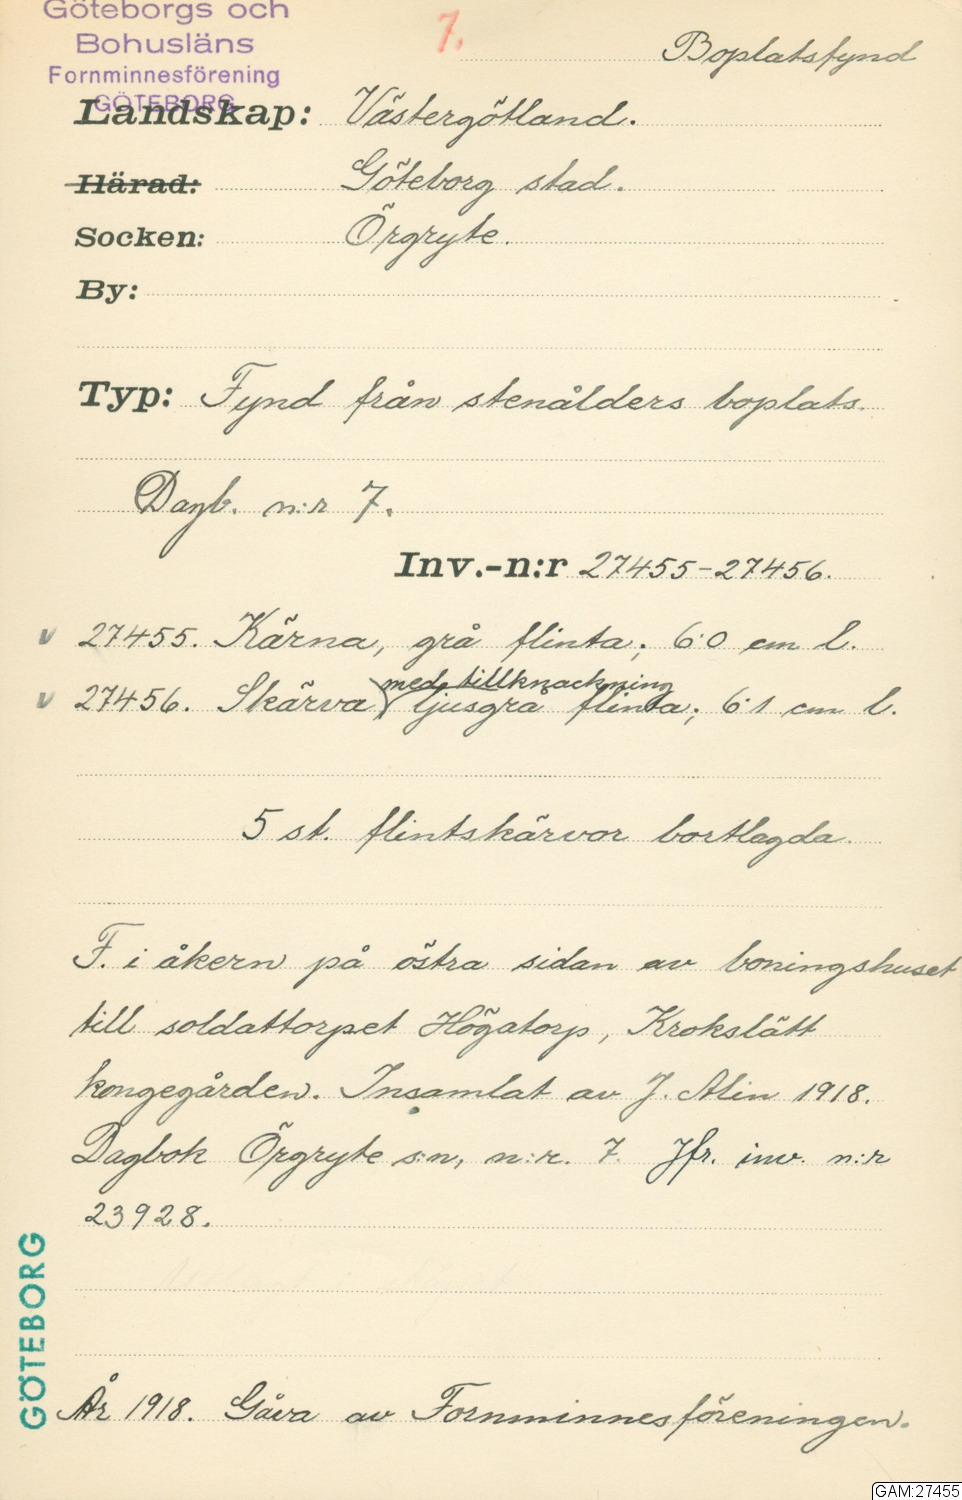 Göteborgs och
Bohusläns
Fornminnesförening
GÖTEBORG
7.
Boplatsfynd
Landskap: Västergötland.
Härad: Göteborg stad.
Socken: Örgryte.
By:
Typ: Fynd från stenålders boplats.
Dagb. n:r 7.
Inv.-n:r 27455-27456.
v 27455. Kärna, grå flinta; 6.0 cm l.
med tillknackning
v 27456. Skärva, ljusgrå flinta; 6.1 cm l.
5 st. flintskärvor bortlagda.
F. i åkern på östra sidan av boningshuset
till soldattorpet Högatorp, Krokslätt
kongegården. Insamlat av J. Alin 1918.
Dagbok Örgryte s:n, n:r. 7. Jfr. inv. n:r
23928.
GÖTEBORG
År 1918. Gåva av Fornminnesföreningen.
GAM:27455